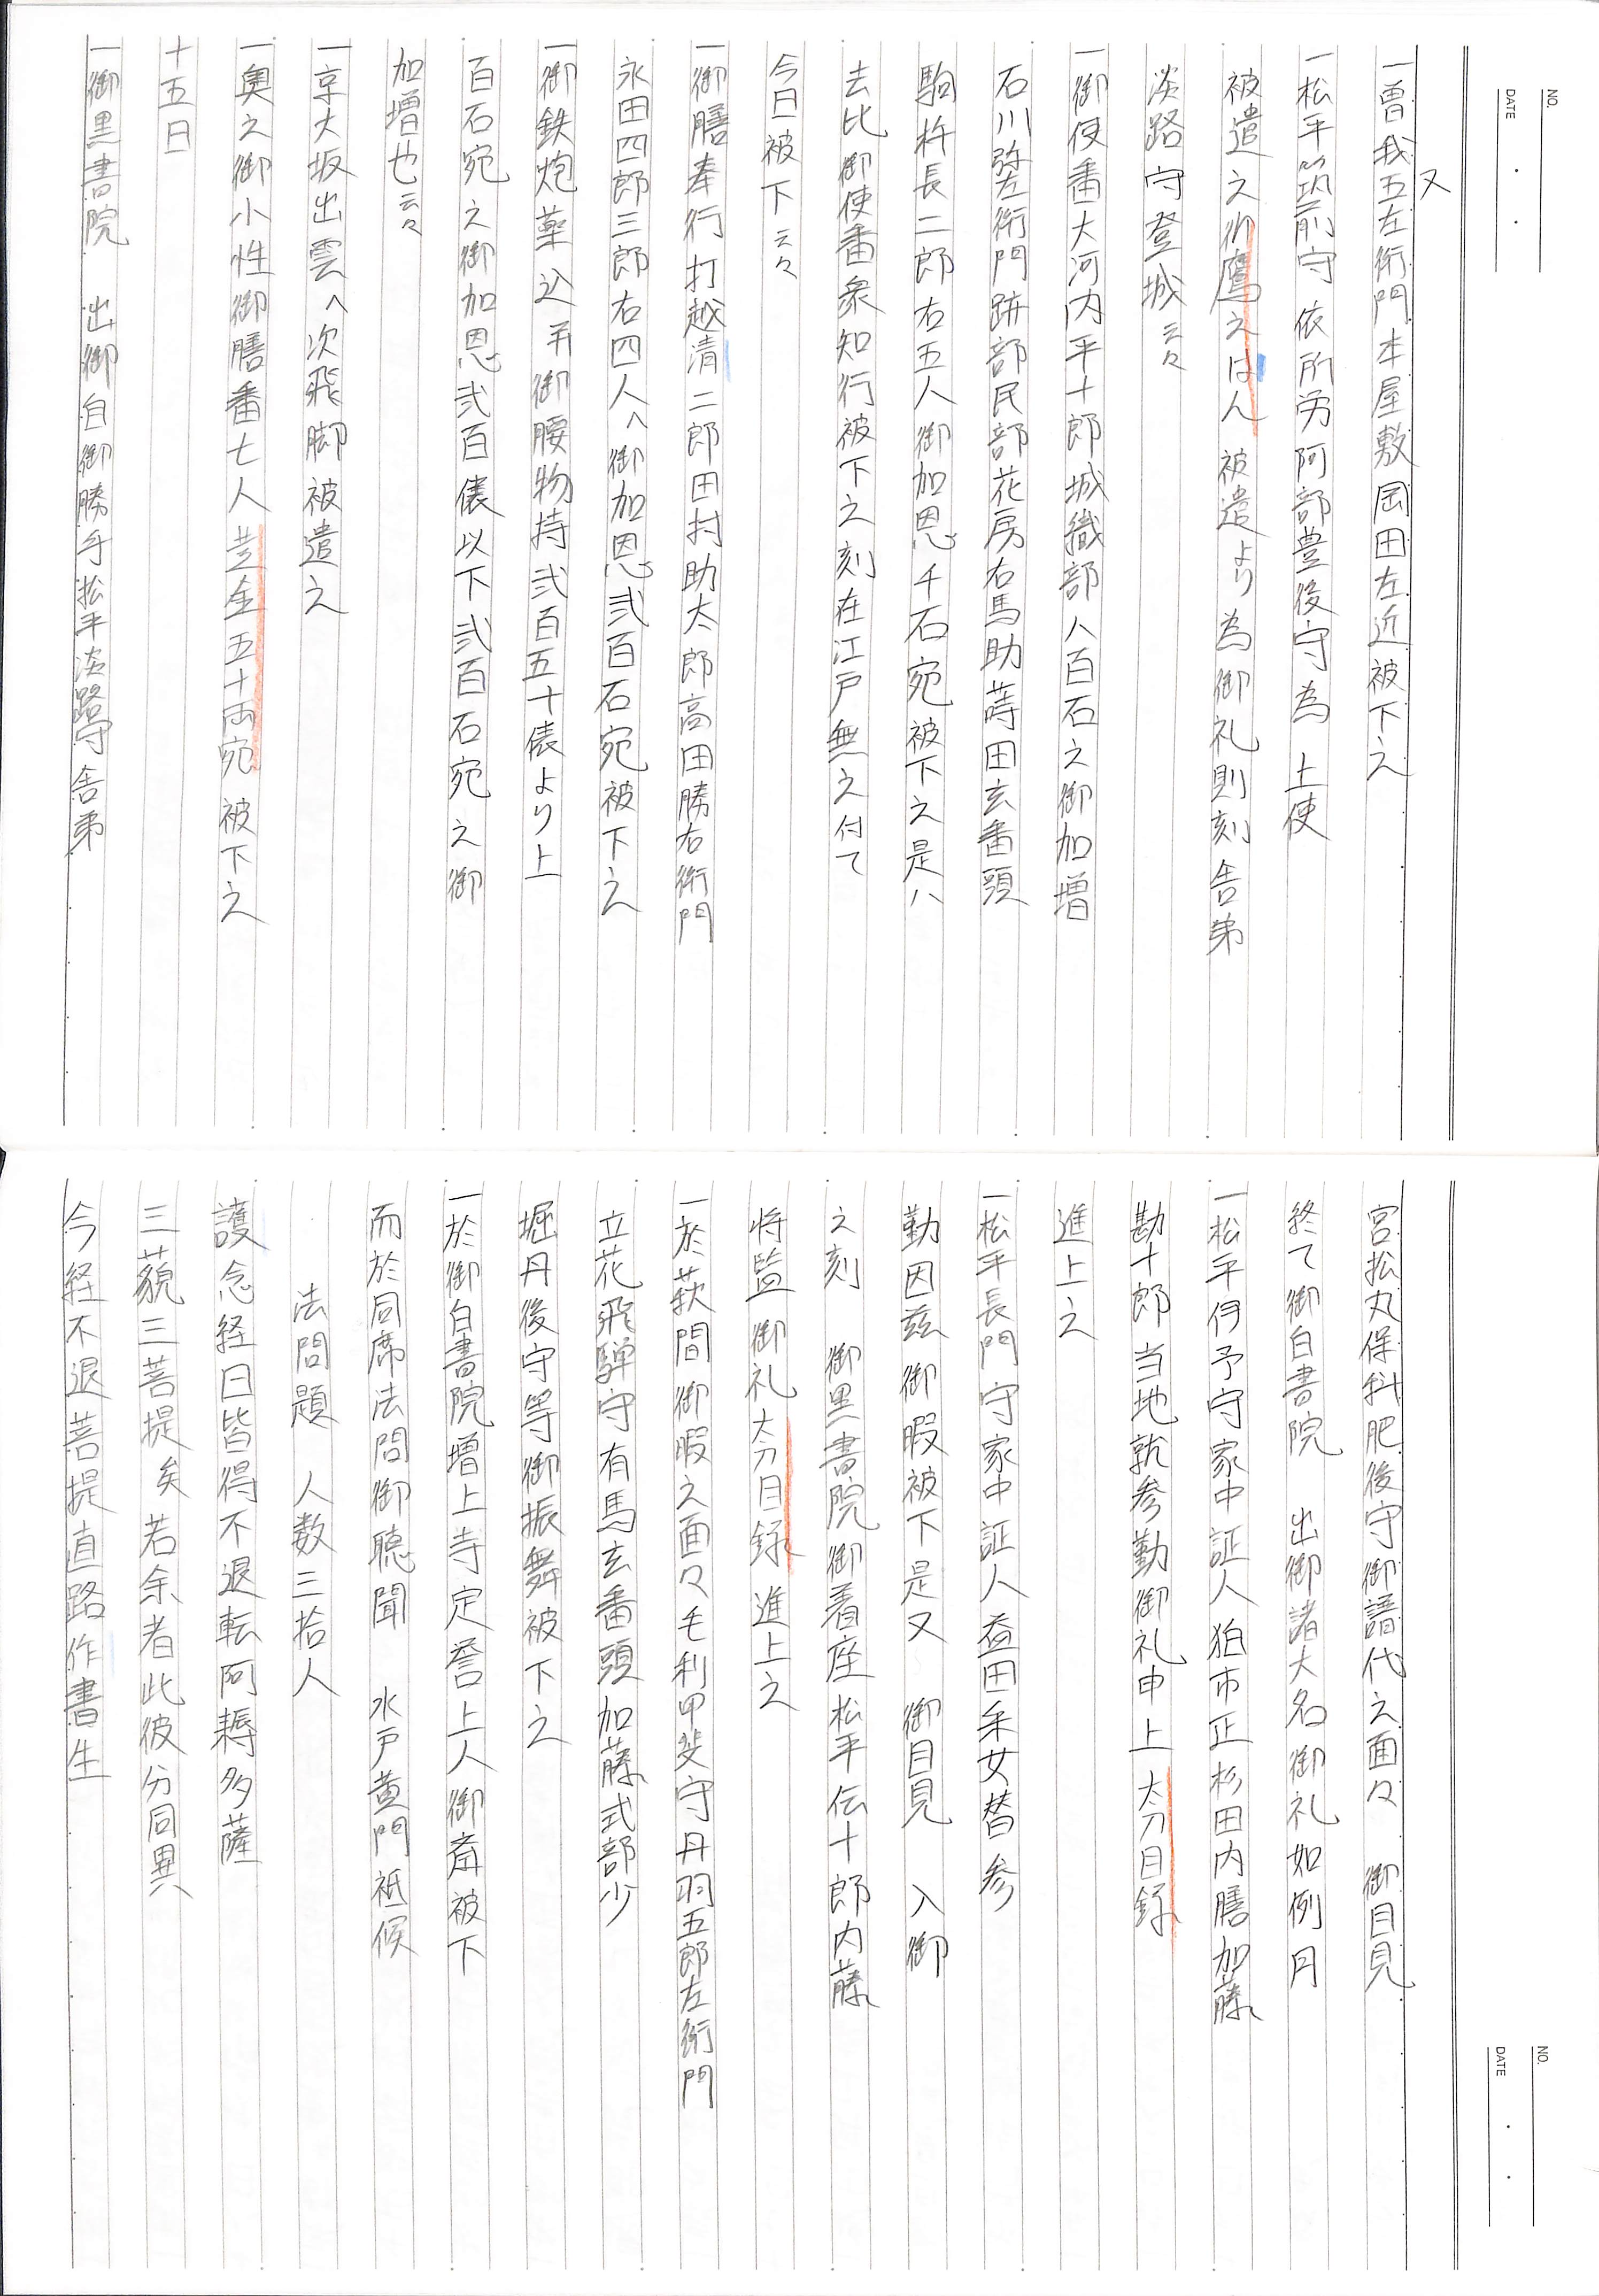 NO.
DATE
一曽我五左衛門本屋敷岡田左近被下之
又
一松平筑前守 依所労阿部豊後守為 上使
被遣之御鷹之はん 被遣より為御礼則刻舎弟
淡路守登城云々
一御使番大河内平十郎城織部八百石之御加増
石川弥左衛門跡部民部花房右馬助蒔田玄番頭
駒杵長二郎右五人御加恩千石宛被下之是ハ
去比御使番衆知行被下之刻在江戸無之付て
今日被下云々
一御膳奉行打越清二郎田村助太郎高田勝右衛門
永田四郎三郎右四人へ御加恩弐百石宛被下之
一御鉄炮薬込并御腰物持弐百五十俵より上
百石宛之御加恩弐百俵以下弐百石宛之御
加増也云々
一京大坂出雲へ次飛脚被遣之
一奥之御小性御膳番七人 金五十両宛被下之
十五日
一御黒書院 出御白御勝手松平淡路守舎弟
NO.
DATE
宮松丸保科肥後守御譜代之面々 御目見
終て御白書院 出御諸大名御礼如例月
一松平伊予守家中証人狛市正杉田内膳加藤
勘十郎当地就参勤御礼申上太刀目録
進上之
一松平長門守家中証人益田采女替参
勤因茲御暇被下是又 御目見 入御
之刻 御黒書院御着座松平伝十郎内藤
将監御礼太刀目録進上之
一於萩間御暇之面々毛利甲斐守丹羽五郎左衛門
立花飛騨守有馬玄番頭加藤式部少
堀丹後守等御振舞被下之
一於御白書院増上寺定誉上人御斎被下
而於同席法問御聴聞 水戸黄門祗候
法問題 人数三拾人
護念経曰皆得不退転阿耨多薩
三藐三菩提矣若余者此彼分同異
今経不退菩提直路作書生